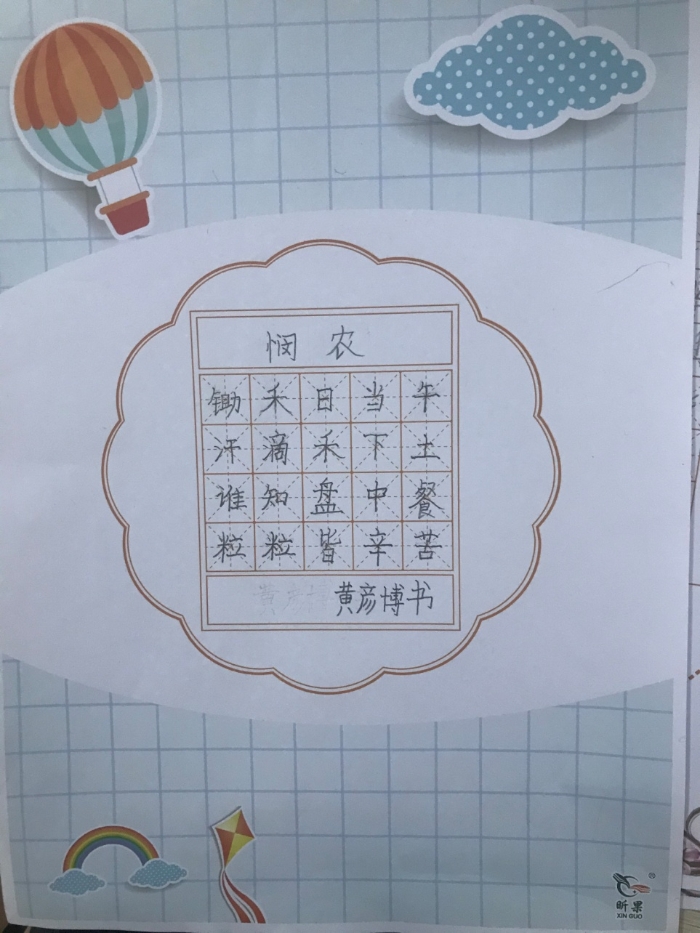 悯农
锄禾日当午
汗滴禾下土
谁知盘中餐
粒粒皆辛苦
黄彦博书
昕果
XIN GUO